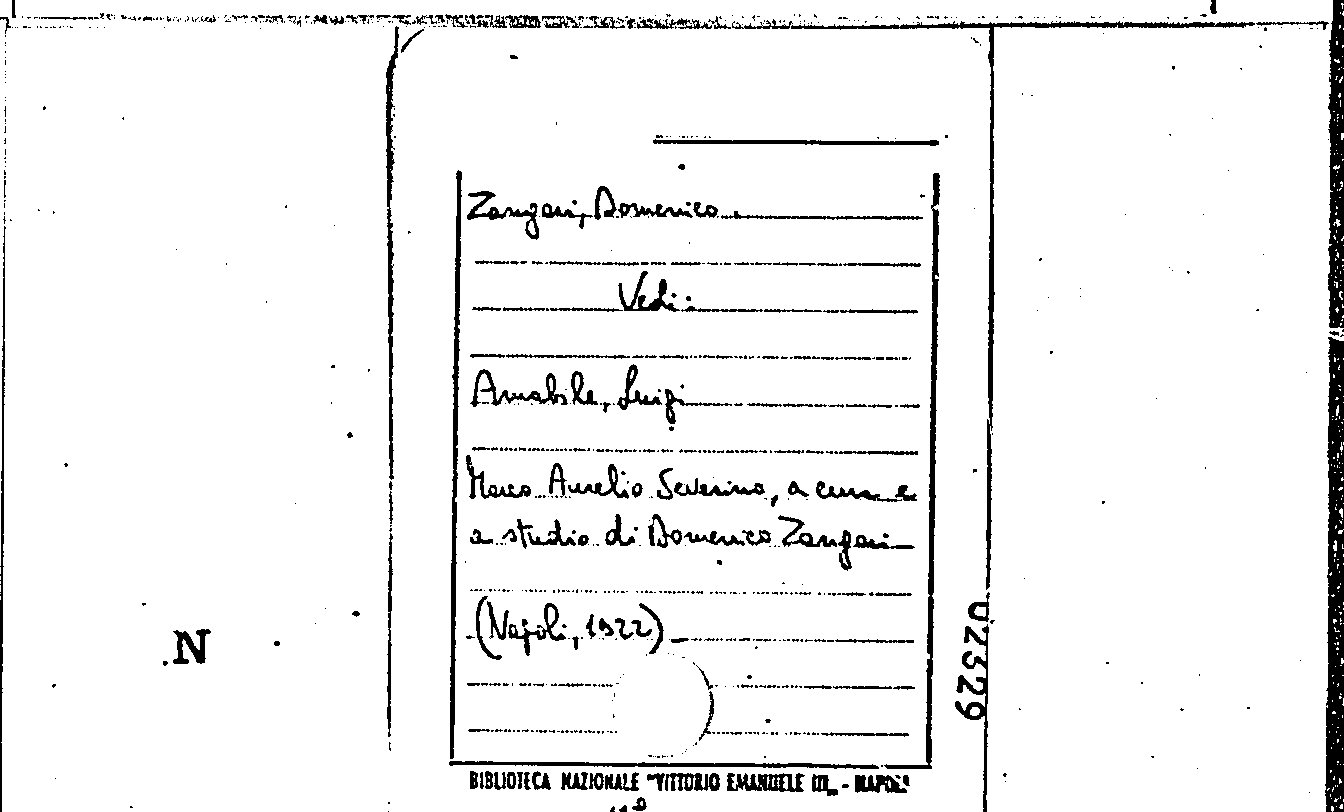 Zangari, Domenico.
Vedi:
Amabile, Luigi
Marco Aurelio Severino, a cura e
a studio di Domenico Zangari
(Napoli, 1922)
N
02529
BIBLIOTECA NAZIONALE "VITTORIO EMANUELE III„ - NAPOLI